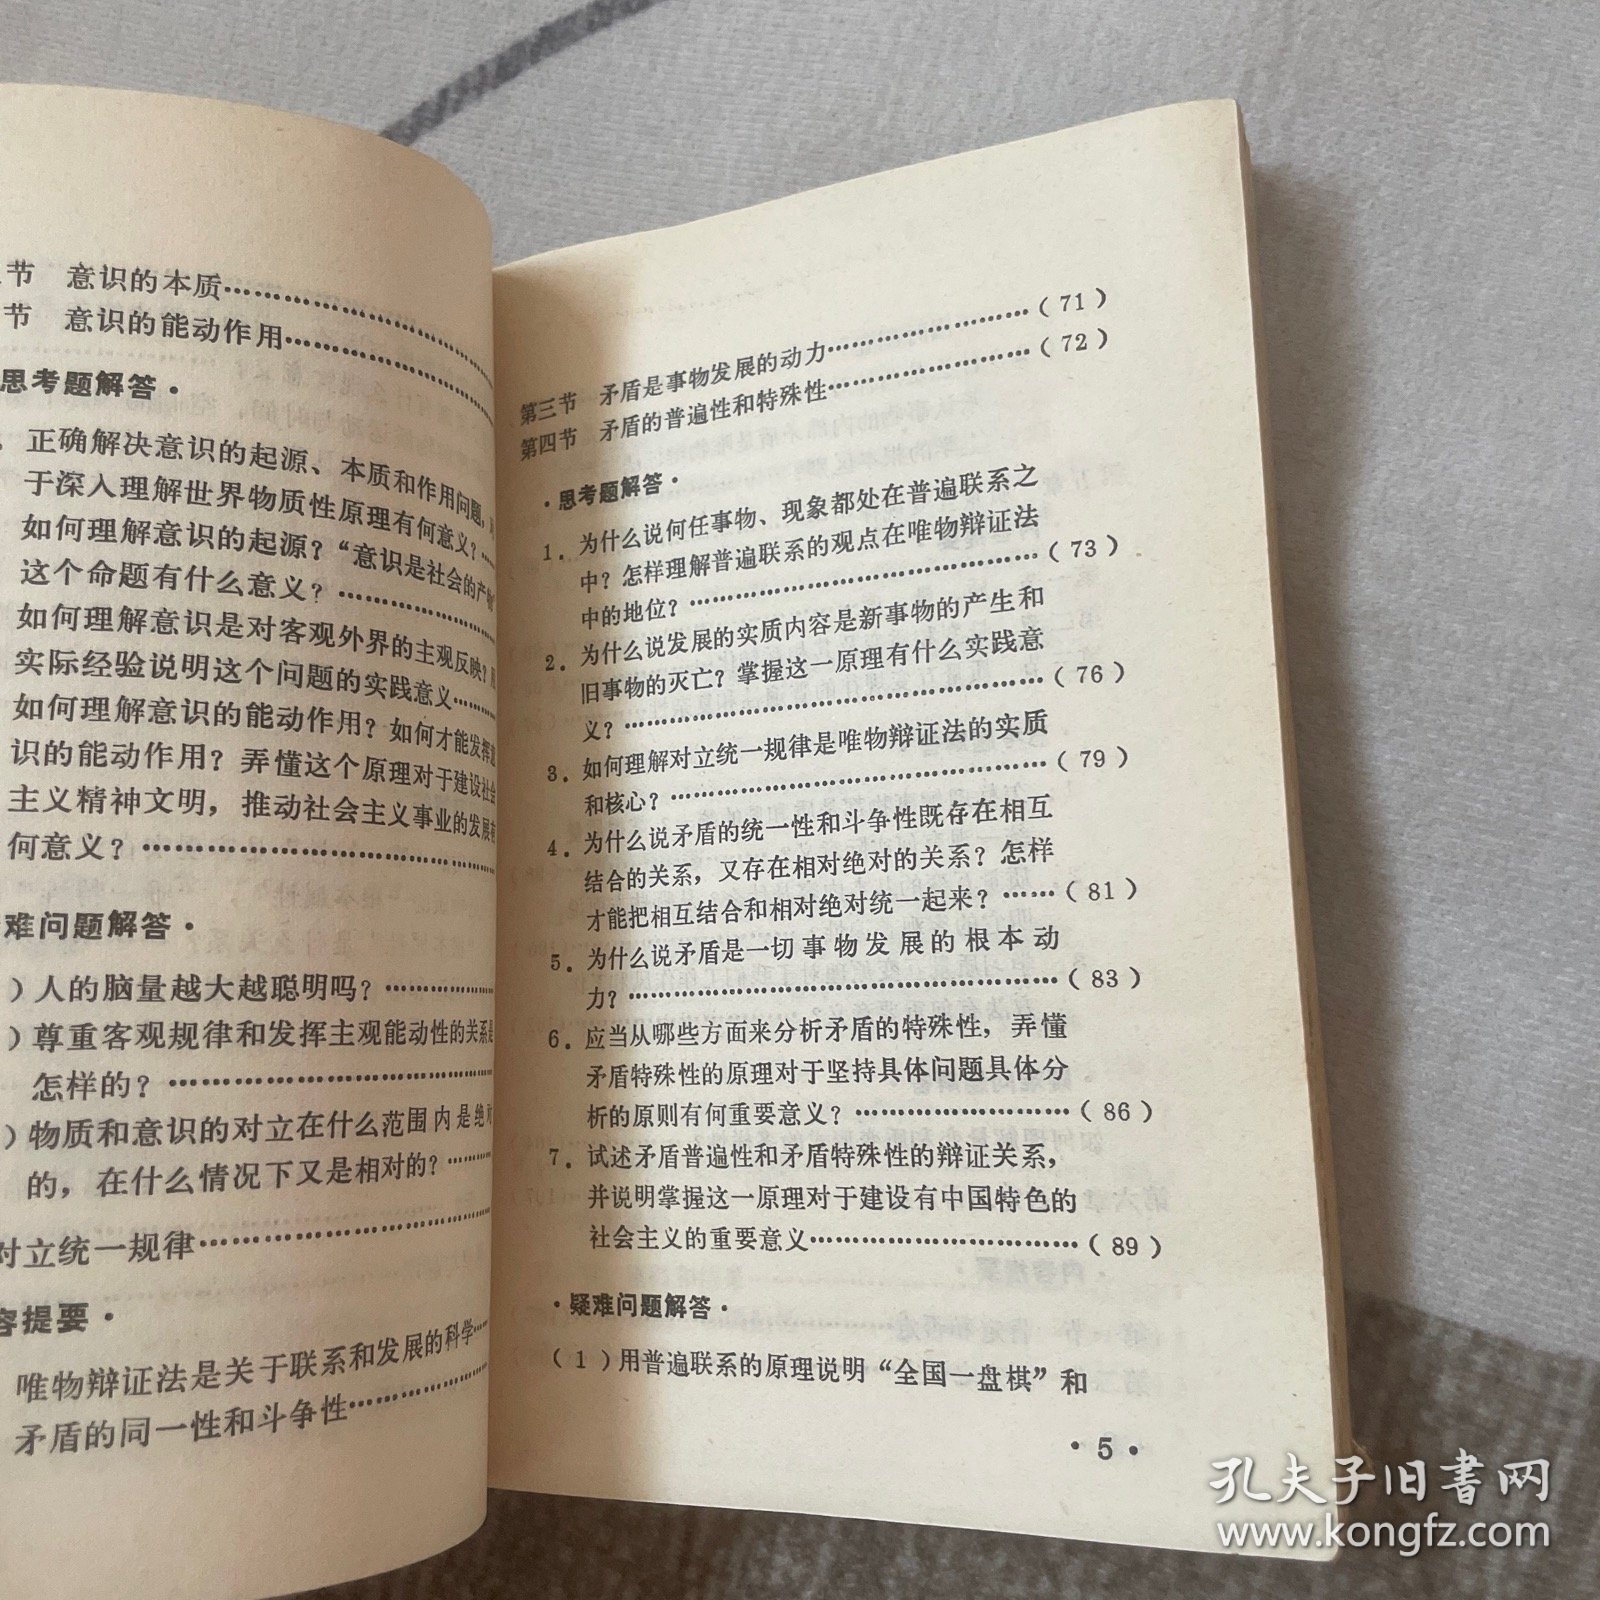 节 意识的本质……………………
节 意识的能动作用……………………
思考题解答·
正确解决意识的起源、本质和作用问题，
于深入理解世界物质性原理有何意义？……
如何理解意识的起源？“意识是社会的产物
这个命题有什么意义？……………………
如何理解意识是对客观外界的主观反映？
实际经验说明这个问题的实践意义………
如何理解意识的能动作用？如何才能发挥意
识的能动作用？弄懂这个原理对于建设社会
主义精神文明，推动社会主义事业的发展有
何意义？……………………………………
难问题解答·
）人的脑量越大越聪明吗？………………
）尊重客观规律和发挥主观能动性的关系是
怎样的？……………………………………
）物质和意识的对立在什么范围内是绝对
的，在什么情况下又是相对的？………
对立统一规律……………………………
容提要·
唯物辩证法是关于联系和发展的科学……
矛盾的同一性和斗争性……………………
第三节 矛盾是事物发展的动力……………………（71）
第四节 矛盾的普遍性和特殊性……………………（72）
·思考题解答·
1．为什么说何任事物、现象都处在普遍联系之
中？怎样理解普遍联系的观点在唯物辩证法
中的地位？……………………………………（73）
2．为什么说发展的实质内容是新事物的产生和
旧事物的灭亡？掌握这一原理有什么实践意
义？……………………………………………（76）
3．如何理解对立统一规律是唯物辩证法的实质
和核心？………………………………………（79）
4．为什么说矛盾的统一性和斗争性既存在相互
结合的关系，又存在相对绝对的关系？怎样
才能把相互结合和相对绝对统一起来？……（81）
5．为什么说矛盾是一切事物发展的根本动
力？……………………………………………（83）
6．应当从哪些方面来分析矛盾的特殊性，弄懂
矛盾特殊性的原理对于坚持具体问题具体分
析的原则有何重要意义？……………………（86）
7．试述矛盾普遍性和矛盾特殊性的辩证关系，
并说明掌握这一原理对于建设有中国特色的
社会主义的重要意义…………………………（89）
·疑难问题解答·
（1）用普遍联系的原理说明“全国一盘棋”和
·5·
孔夫子旧书网
www.kongfz.com